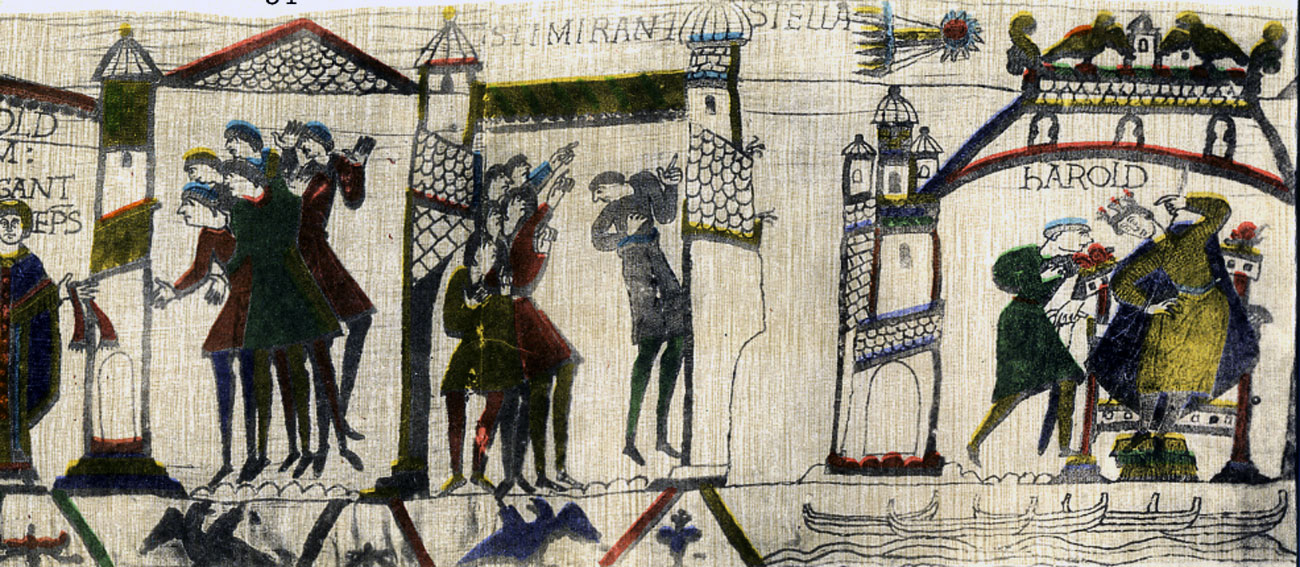 OLD
M:
SANT
EPS
ISTI MIRANT
STELLA
HAROLD